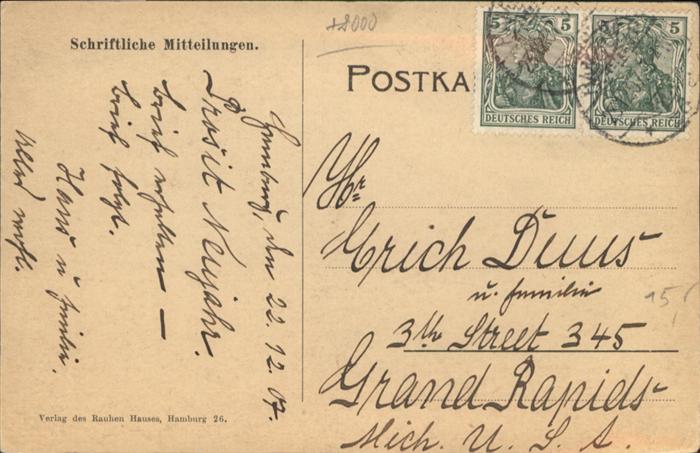 +2000
Schriftliche Mitteilungen.
POSTKA
5 5
DEUTSCHES REICH
5 5
DEUTSCHES REICH
Hamburg, den 22.12.07.
Prosit Neujahr.
brief erhalten —
brief folgt.
Hans u familie.
Hr
Erich Duus
u. familie
3th Street 345
Grand Rapids
Mich. U. S. A.
15
Verlag des Rauhen Hauses, Hamburg 26.